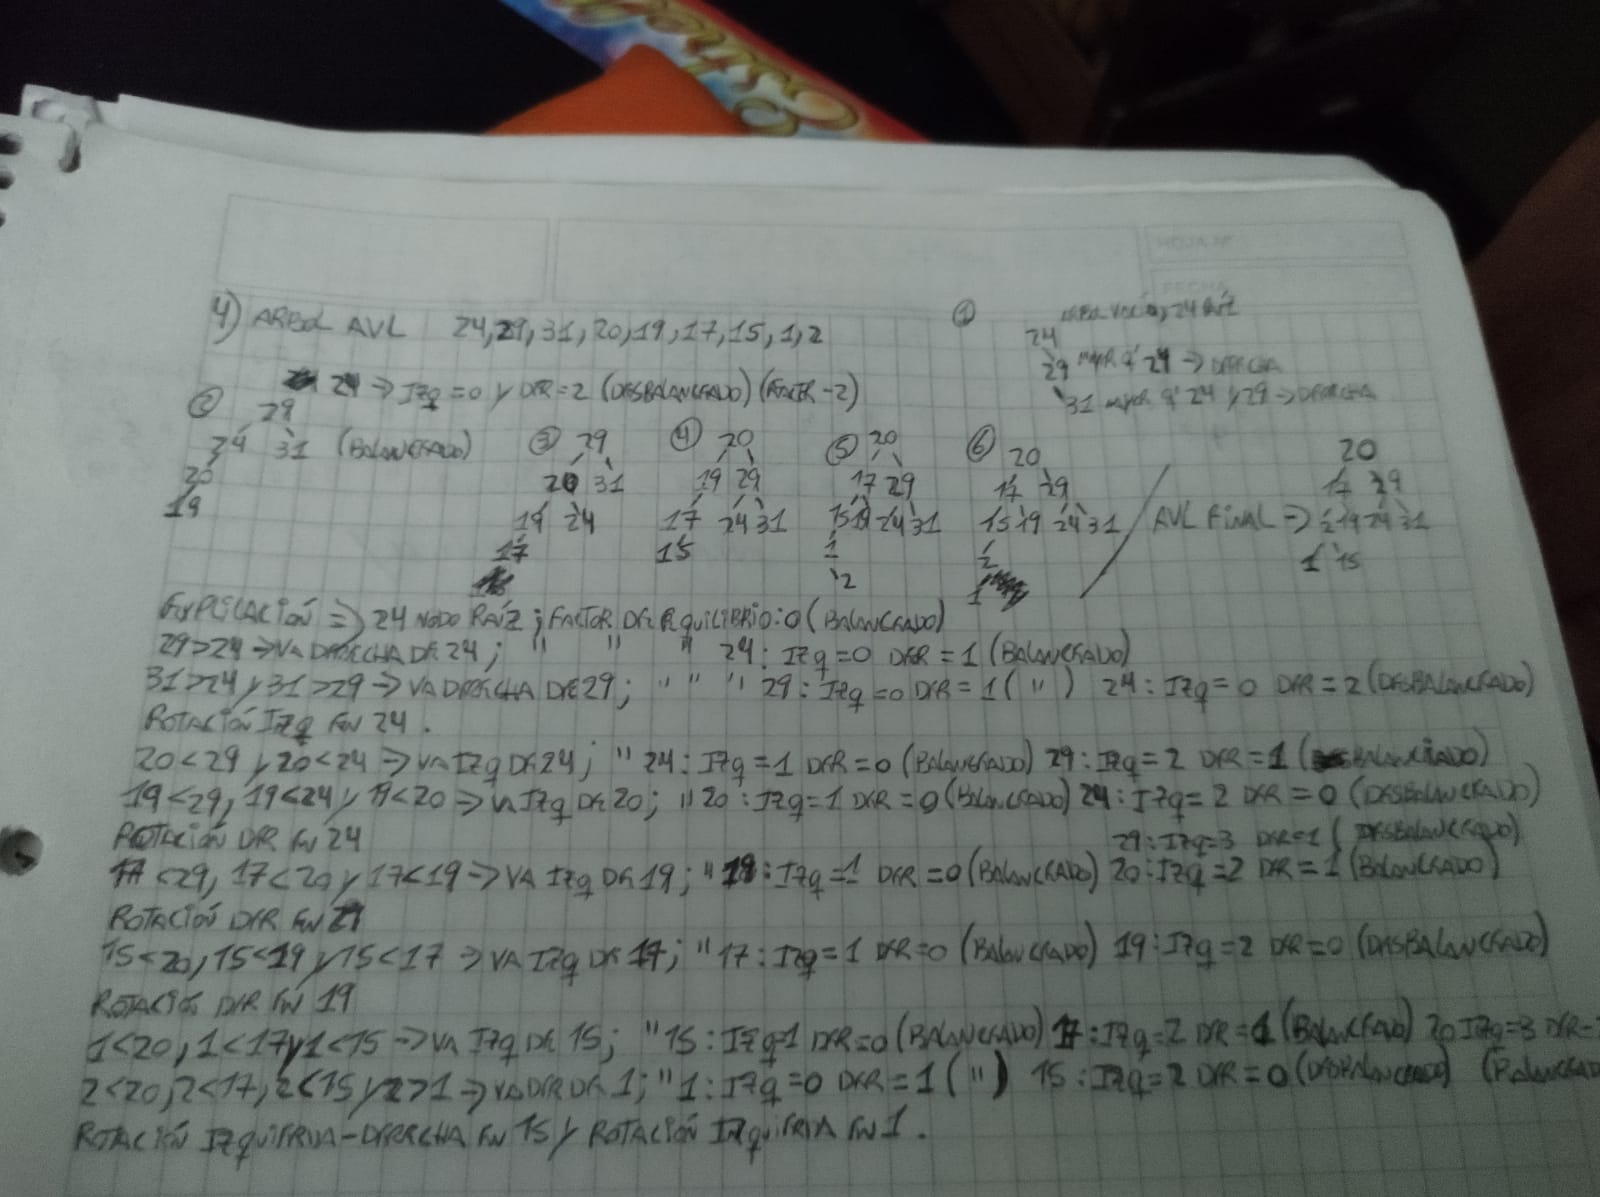 HOJA Nº
FECHA
4) ARBOL AVL 24, 29, 31, 20, 19, 17, 15, 1, 2
① ARBOL VACÍO, 24 RAÍZ
24
29 MAYOR q' 24 → DERECHA
31 MAYOR q' 24 y 29 → DERECHA
24 → Izq = 0 y DER = 2 (DESBALANCEADO) (FACTOR -2)
② 29
24 31 (BALANCEADO)
20
19
③ 29
20 31
19 24
17
④ 20
19 29
17 24 31
15
⑤ 20
17 29
15 19 24 31
1
2
⑥ 20
17 29
15 19 24 31
2
1
AVL FINAL ⇒
20
17 29
2 19 24 31
1 15
EXPLICACIÓN ⇒ 24 NODO RAÍZ; FACTOR DE EQUILIBRIO: 0 (BALANCEADO)
29>24 → VA DERECHA DE 24; " " " 24: Izq=0 DER=1 (BALANCEADO)
31>24 y 31>29 → VA DERECHA DE 29; " " " 29: Izq=0 DER=1 (") 24: Izq=0 DER=2 (DESBALANCEADO)
ROTACIÓN Izq EN 24.
20<29 y 20<24 → VA Izq DE 24; " 24: Izq=1 DER=0 (BALANCEADO) 29: Izq=2 DER=1 (BALANCEADO)
19<29, 19<24 y 19<20 → VA Izq DE 20; " 20: Izq=1 DER=0 (BALANCEADO) 24: Izq=2 DER=0 (DESBALANCEADO)
ROTACIÓN DER EN 24 29: Izq=3 DER=1 (DESBALANCEADO)
17<29, 17<20 y 17<19 → VA Izq DE 19; " 19: Izq=1 DER=0 (BALANCEADO) 20: Izq=2 DER=1 (BALANCEADO)
ROTACIÓN DER EN 29
15<20, 15<19 y 15<17 → VA Izq DE 17; " 17: Izq=1 DER=0 (BALANCEADO) 19: Izq=2 DER=0 (DESBALANCEADO)
ROTACIÓN DER EN 19
1<20, 1<17 y 1<15 → VA Izq DE 15; " 15: Izq=1 DER=0 (BALANCEADO) 17: Izq=2 DER=1 (BALANCEADO) 20 Izq=3 DER=
2<20, 2<17, 2<15 y 2>1 → VA DER DE 1; " 1: Izq=0 DER=1 (") 15: Izq=2 DER=0 (DESBALANCEADO) (BALANCEADO
ROTACIÓN IZQUIERDA-DERECHA EN 15 y ROTACIÓN IZQUIERDA EN 1.